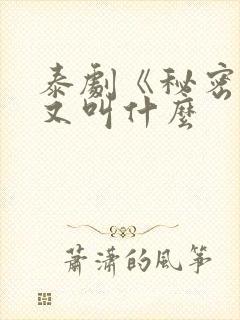 泰劇《秘密
又叫什麼
蕭瀟的風箏